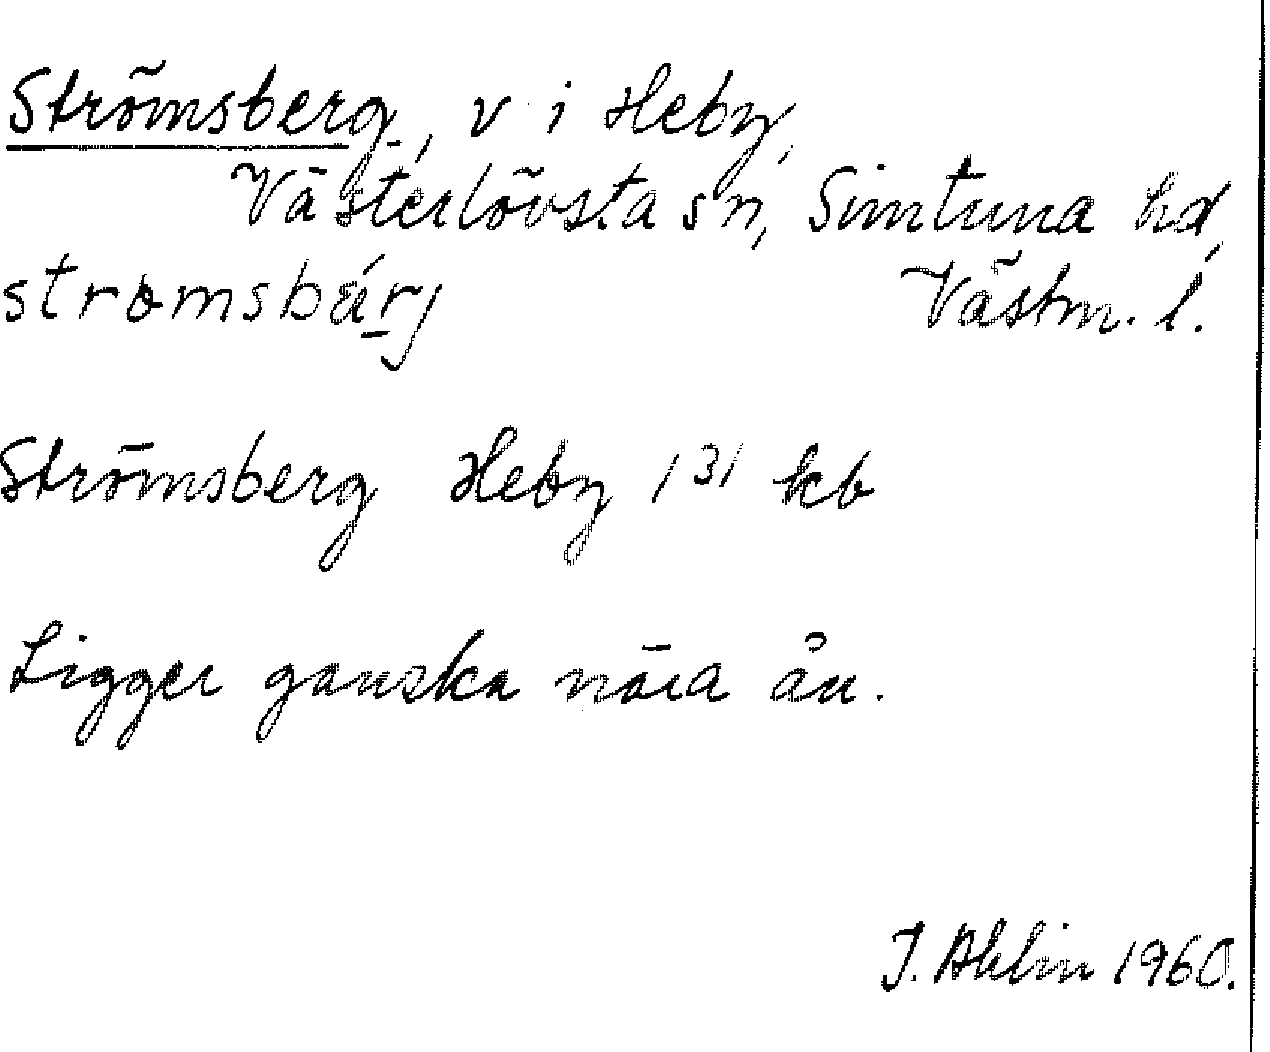 Strömsberg, v i Heby,
Västerlövsta sn, Simtuna hd,
Västm. l.
Strömsberg Heby 1 31 kb
Ligger ganska nära ån.
J. Ahlin 1960.